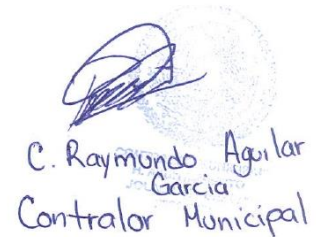 C. Raymundo Aguilar
Garcia
Contralor Municipal